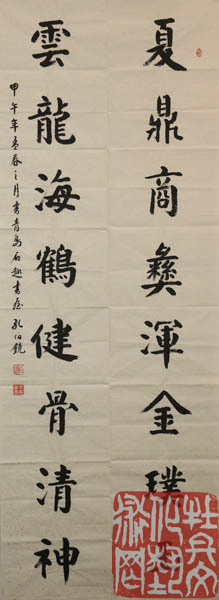 夏鼎商彝渾金璞
雲龍海鶴健骨清神
甲午年孟春之月書青島石趣書屋孔伯鏡